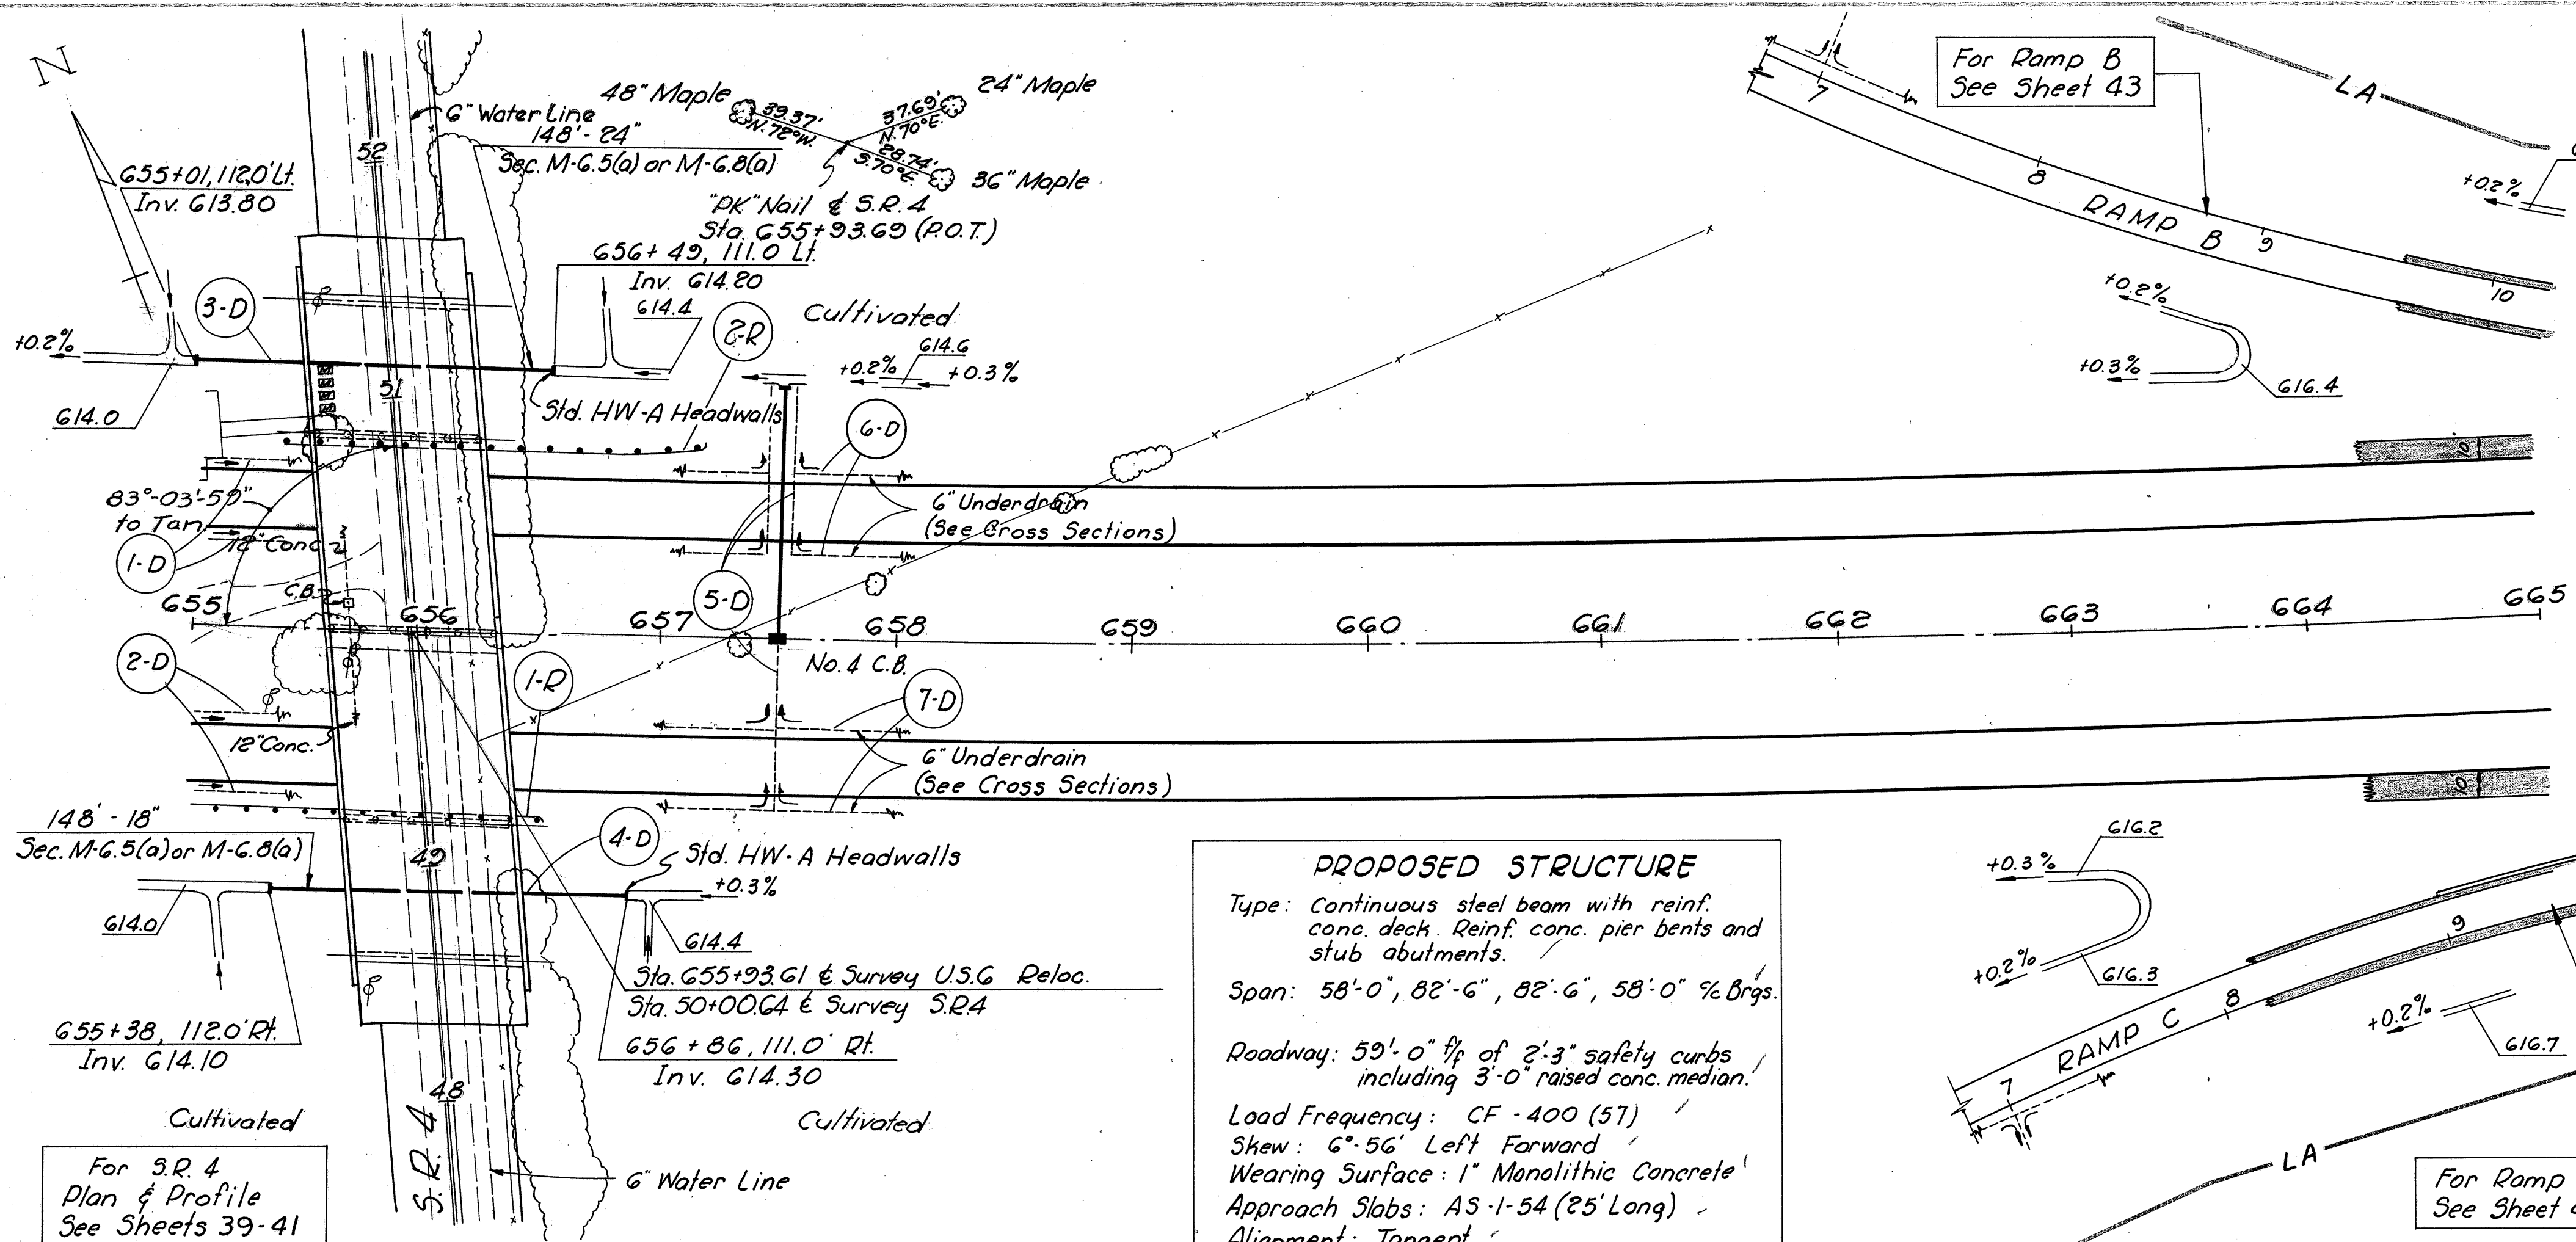 N
655+01, 112.0' Lt.
Inv. 613.80
52
6" Water Line
148'-24"
Sec. M-6.5(a) or M-6.8(a)
48" Maple
39.37'
N.72°W.
37.69'
N.70°E.
24" Maple
28.74'
S.70°E.
36" Maple
"PK" Nail ℄ S.R. 4
Sta. 655+93.69 (P.O.T.)
656+49, 111.0 Lt.
Inv. 614.20
614.4
3-D
2-R
Cultivated
+0.2%
614.0
51
Std. HW-A Headwalls
614.6
+0.2%
+0.3%
6-D
83°-03'-59"
to Tan.
12" Conc.
1-D
C.B.
6" Underdrain
(See Cross Sections)
5-D
655
656
657
658
659
660
661
662
663
664
665
2-D
1-R
No. 4 C.B.
7-D
12" Conc.
6" Underdrain
(See Cross Sections)
148' - 18"
Sec. M-6.5(a) or M-6.8(a)
49
4-D
Std. HW-A Headwalls
+0.3%
614.0
614.4
Sta. 655+93.61 ℄ Survey U.S.6 Reloc.
Sta. 50+00.64 ℄ Survey S.R.4
655+38, 112.0' Rt.
Inv. 614.10
656+86, 111.0' Rt.
Inv. 614.30
48
S.R. 4
Cultivated
Cultivated
6" Water Line
For S.R. 4
Plan & Profile
See Sheets 39-41
For Ramp B
See Sheet 43
LA
7
8
RAMP B
9
10
+0.2%
+0.2%
+0.3%
616.4
10'
10'
PROPOSED STRUCTURE
Type: Continuous steel beam with reinf.
conc. deck. Reinf. conc. pier bents and
stub abutments.
Span: 58'-0", 82'-6", 82'-6", 58'-0" c/c Brgs.
Roadway: 59'-0" f/f of 2'-3" safety curbs
including 3'-0" raised conc. median.
Load Frequency: CF-400 (57)
Skew: 6°-56' Left Forward
Wearing Surface: 1" Monolithic Concrete
Approach Slabs: AS-1-54 (25' Long)
Alignment: Tangent
616.2
+0.3%
+0.2%
616.3
9
8
RAMP C
7
+0.2%
616.7
LA
For Ramp
See Sheet